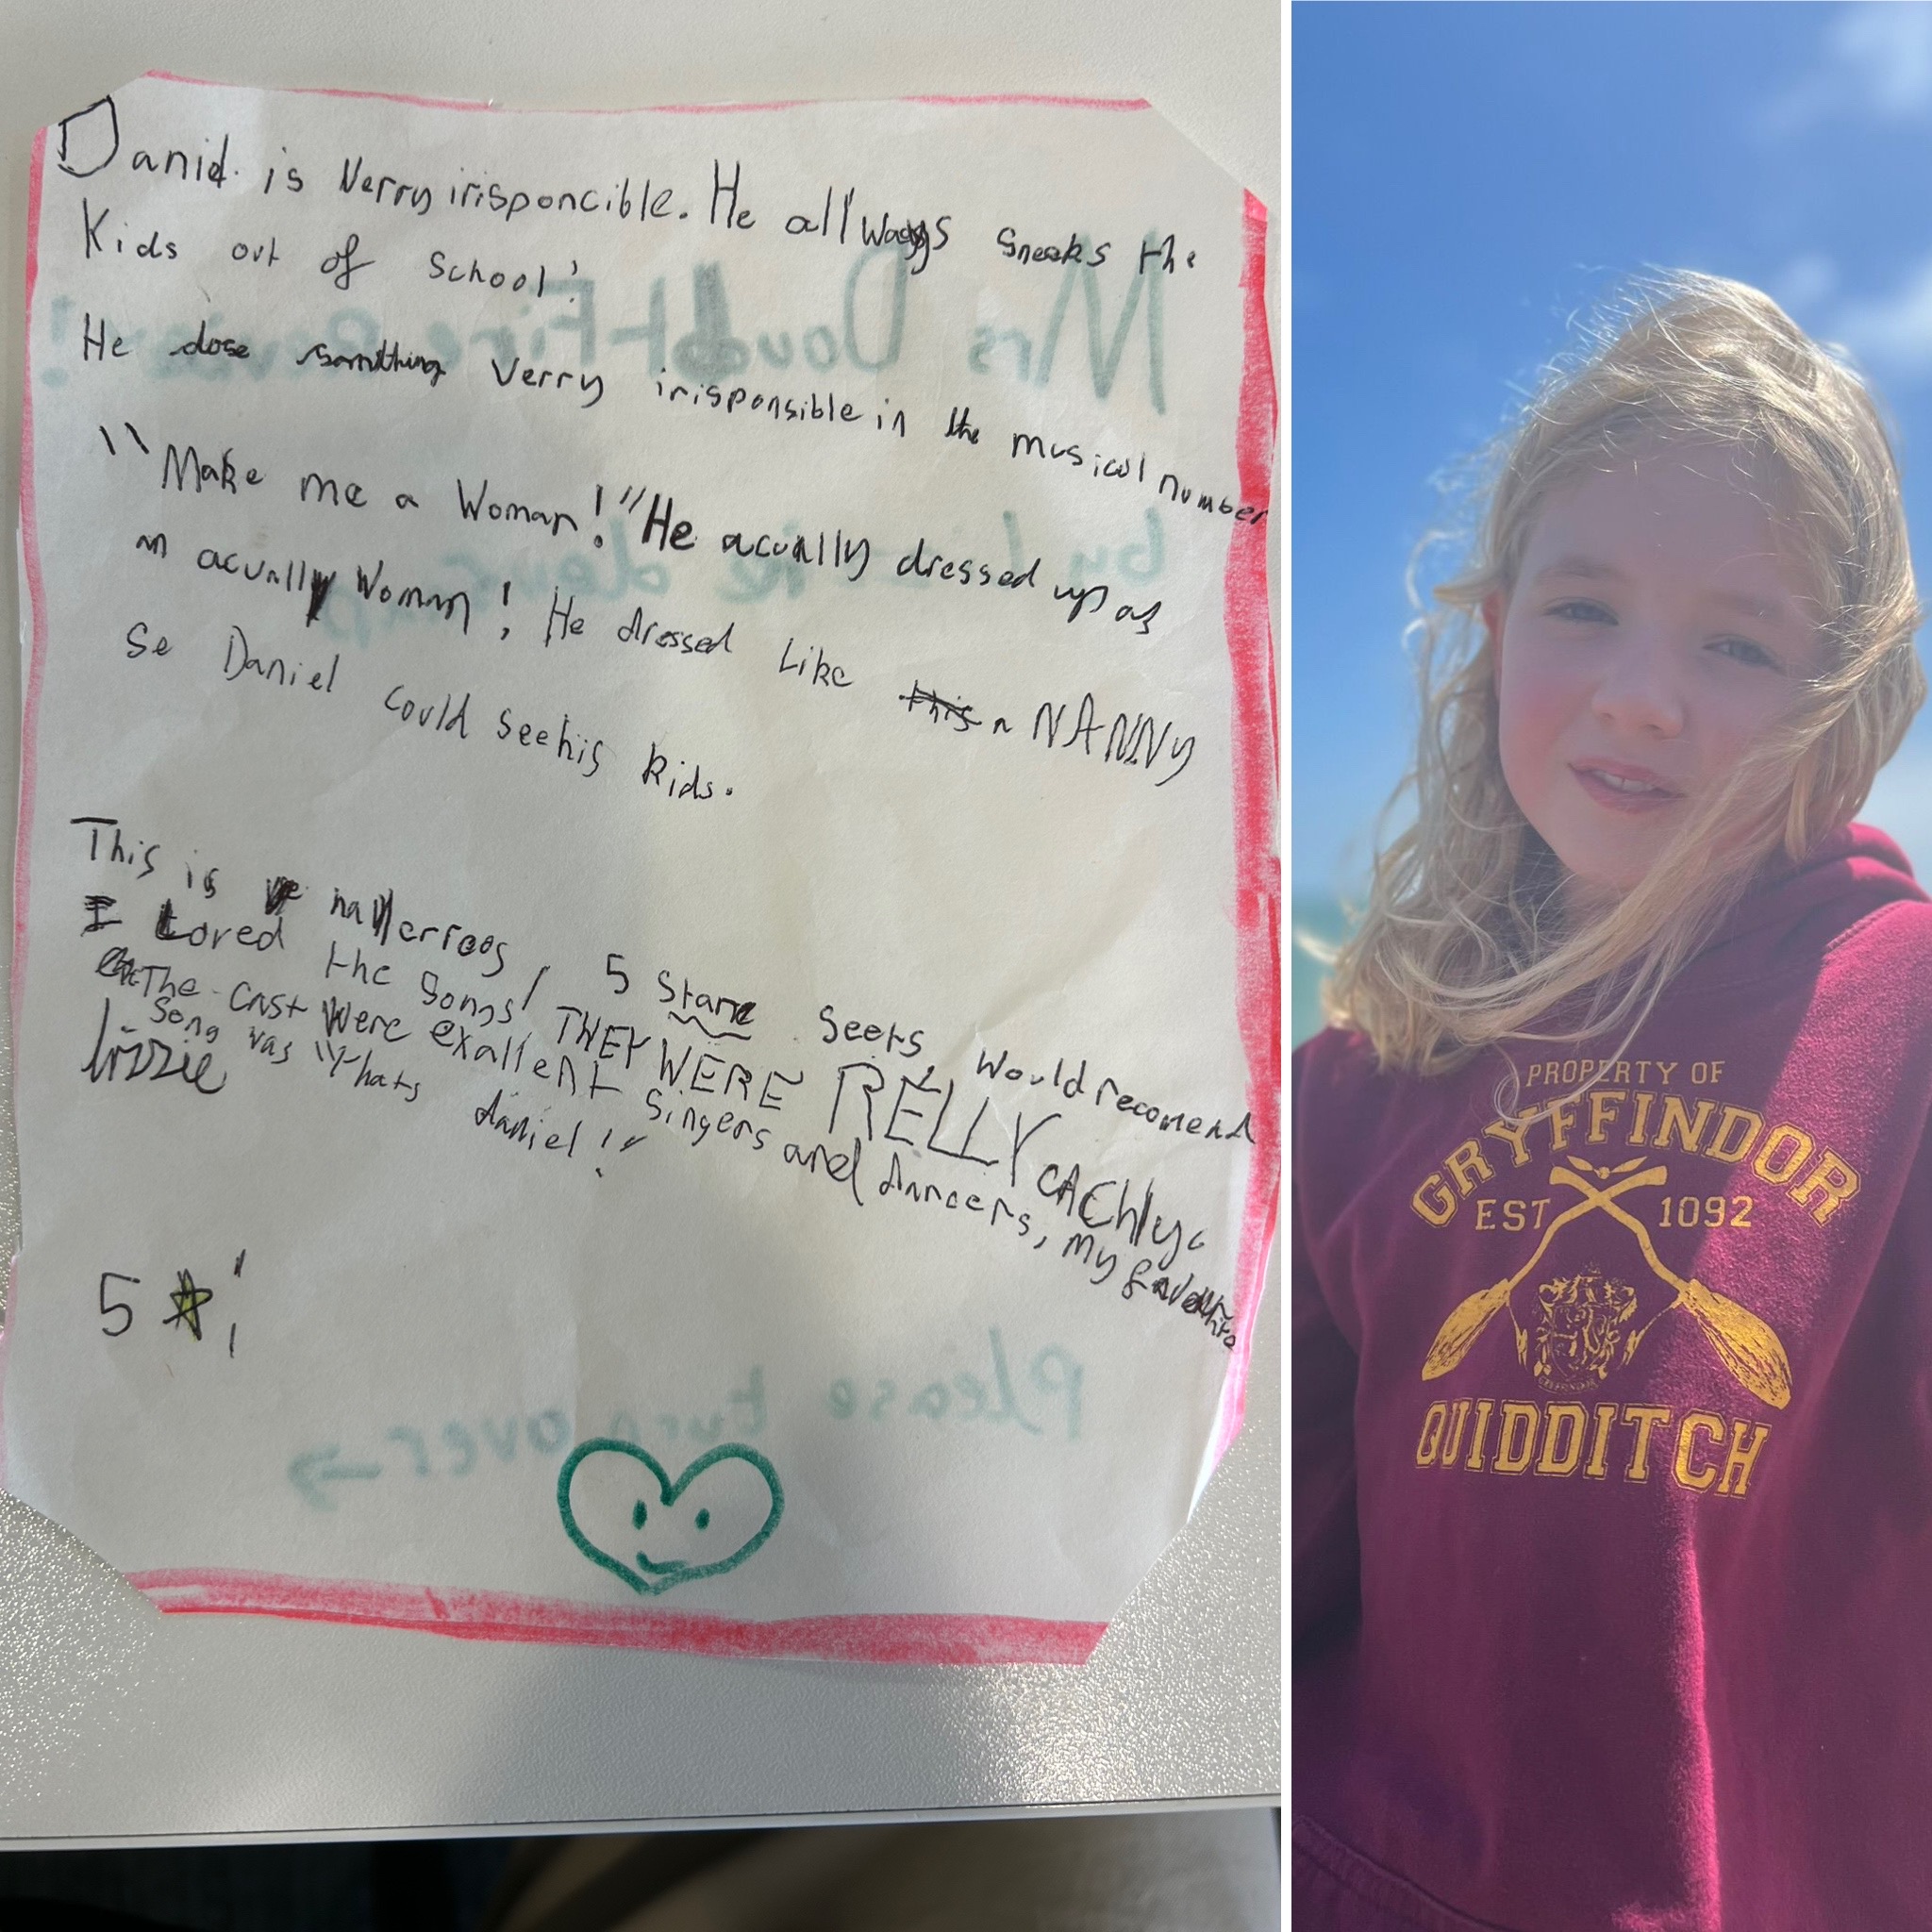 Daniel is Verry irisponcible. He all'ways sneeks the
Kids out of School!
He dose somthing Verry irisponsible in the musical number
"Make me a Woman!" He acually dressed up as
an acually Woman! He dressed Like this a NANNY
So Daniel could see his kids.
This is hallerroos, 5 Stare Seets, Would recomend
I Loved the Songs! THEY WERE RELLY CACHIy.
The cast Were exallent singers and dancers, my
Song was "thats daniel!"
lizzie
5
Please turn over →
Mrs Doubt-Fire
by
PROPERTY OF
GRYFFINDOR
EST 1092
QUIDDITCH